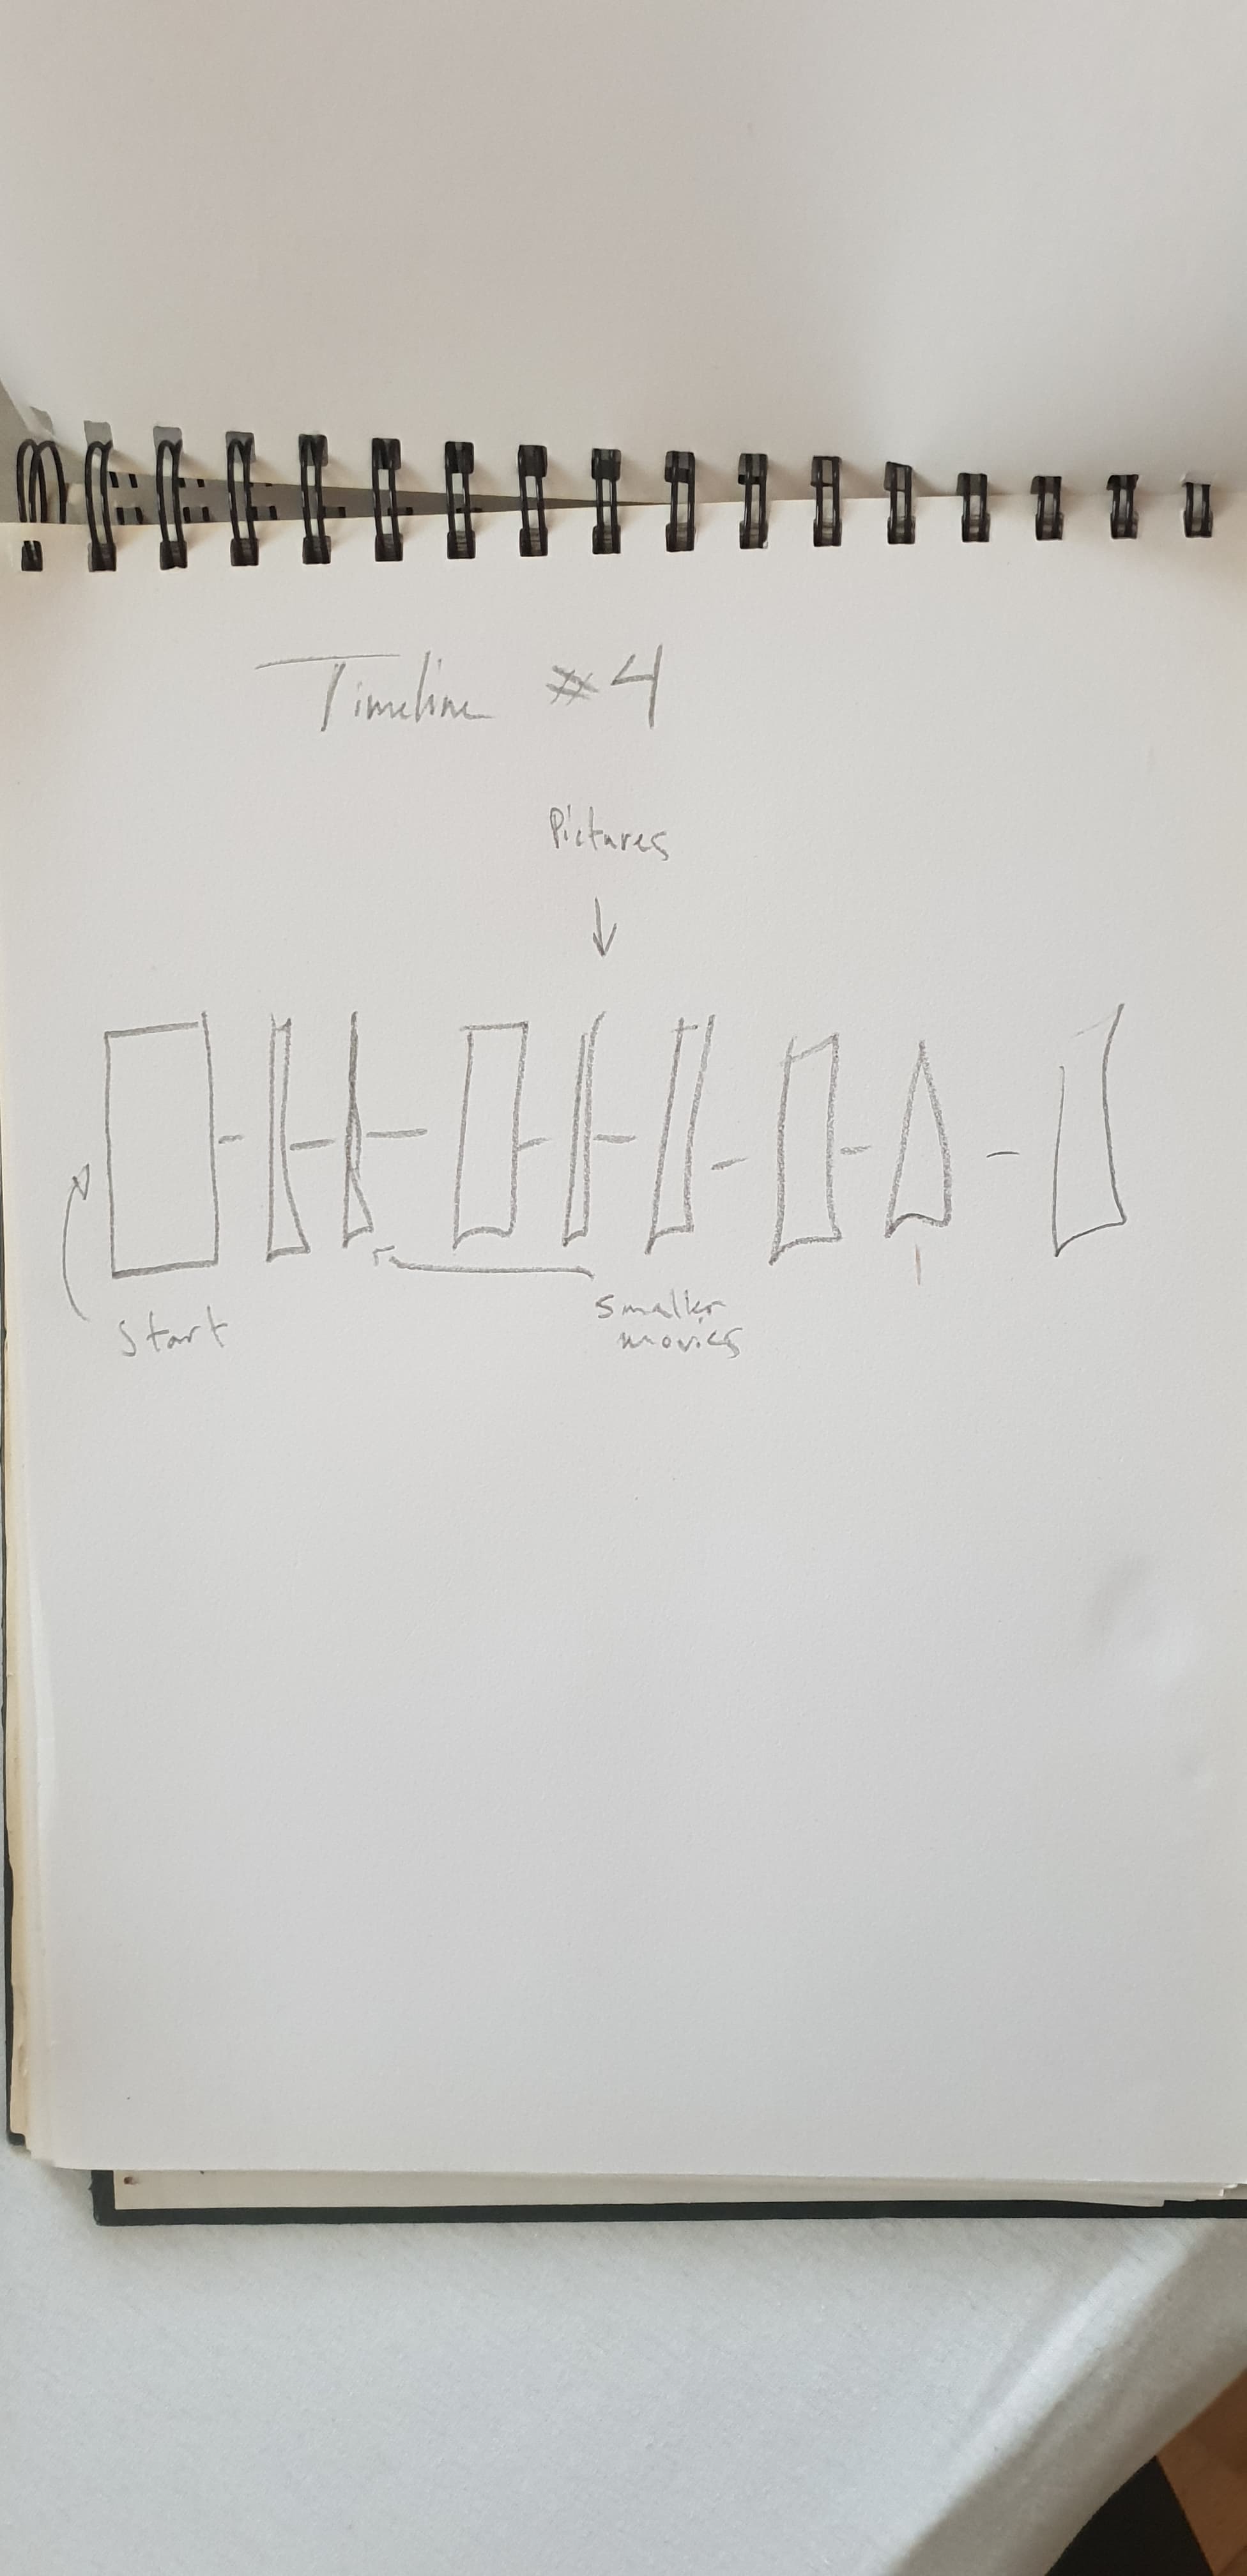 Timeline #4
Pictures
Start
Smaller
movies